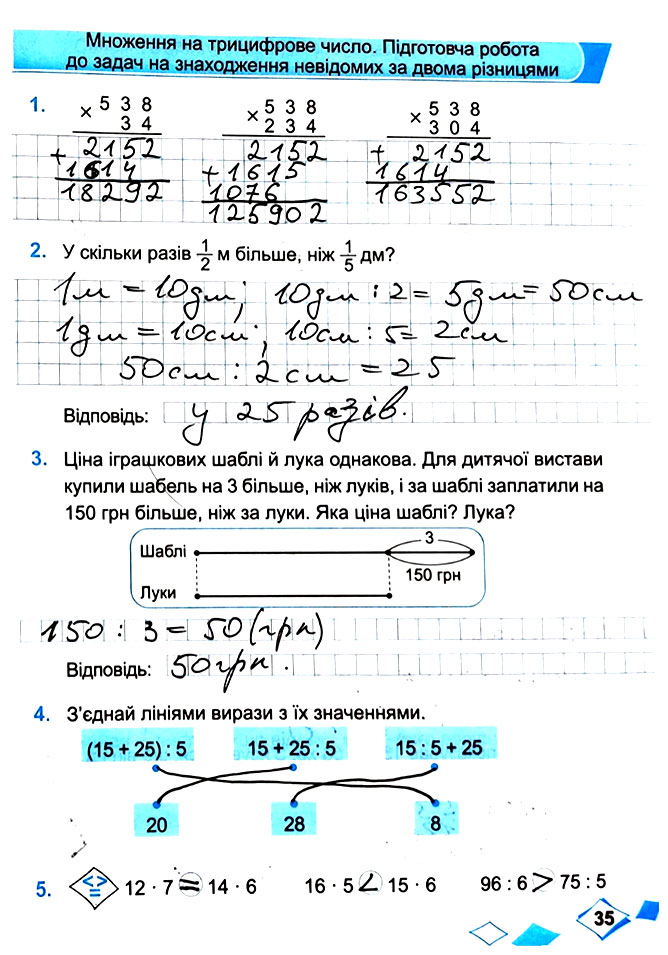 Множення на трицифрове число. Підготовча робота
до задач на знаходження невідомих за двома різницями
1. × 538 × 538 × 538
34 234 304
+ 2152 2152 + 2152
1614 + 1615 1614
18292 1076 163552
125902
2. У скільки разів 1/2 м більше, ніж 1/5 дм?
1м = 10дм; 10дм : 2 = 5дм = 50см
1дм = 10см; 10см : 5 = 2см
50см : 2см = 25
Відповідь: у 25 разів.
3. Ціна іграшкових шаблі й лука однакова. Для дитячої вистави
купили шабель на 3 більше, ніж луків, і за шаблі заплатили на
150 грн більше, ніж за луки. Яка ціна шаблі? Лука?
3
Шаблі
150 грн
Луки
150 : 3 = 50 (грн)
Відповідь: 50грн.
4. З'єднай лініями вирази з їх значеннями.
(15 + 25) : 5 15 + 25 : 5 15 : 5 + 25
20 28 8
5. < > = 12 · 7 = 14 · 6 16 · 5 < 15 · 6 96 : 6 > 75 : 5
35